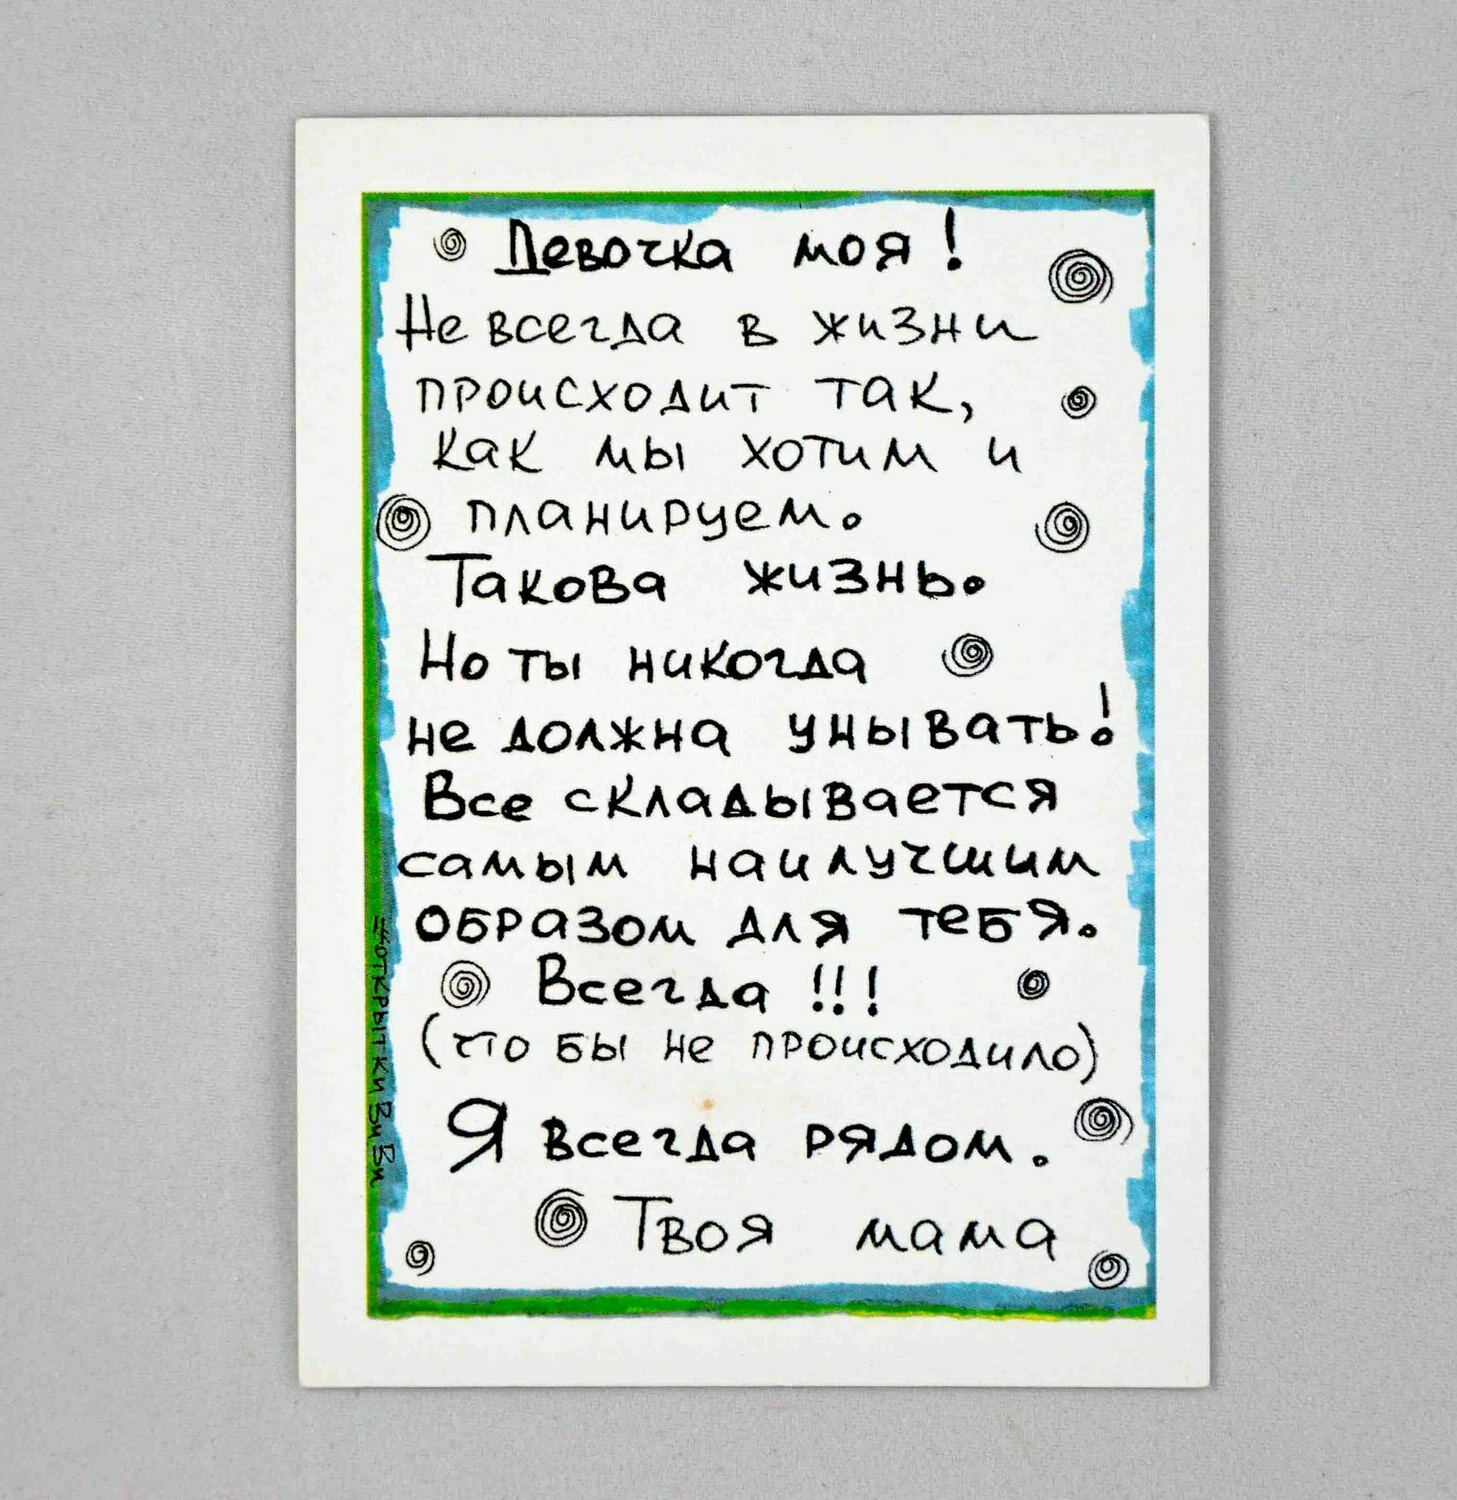 Девочка моя!
Не всегда в жизни
происходит так,
как мы хотим и
планируем.
Такова жизнь.
Но ты никогда
не должна унывать!
Все складывается
самым наилучшим
образом для тебя.
Всегда !!!
(что бы не происходило)
Я всегда рядом.
Твоя мама
#открыткиВиВи